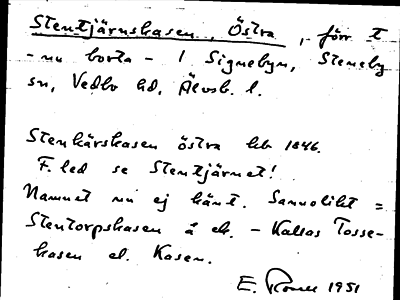 Stentjärnskasen, Östra, förr t
- nu borta - i Signebyn, Steneby
sn, Vedbo hd, Älvsb. l.
Stenkärskasen östra hb 1846.
F. led se Stentjärnet!
Namnet nu ej känt. Sannolikt =
Stentorpskasen å ek. - Kallas Tosse-
kasen el. Kasen.
E. 1951